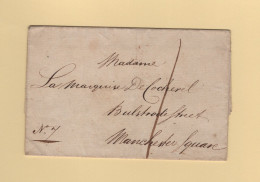 Madame
La Marquise De Cocherel
Bulstrode Street
No. 7
Manchester Square